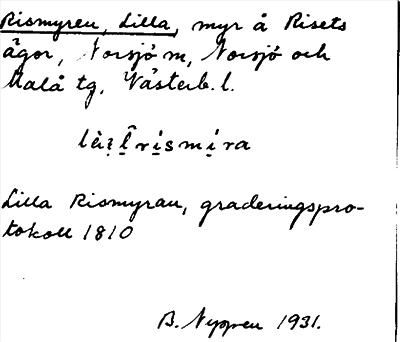 Rismyren, Lilla, myr å Risets
ägor, Norsjö m, Norsjö och
Malå tg, Västerb. l.
Lilla Rismyran, graderingspro-
tokoll 1810
B. Nyppen 1931.